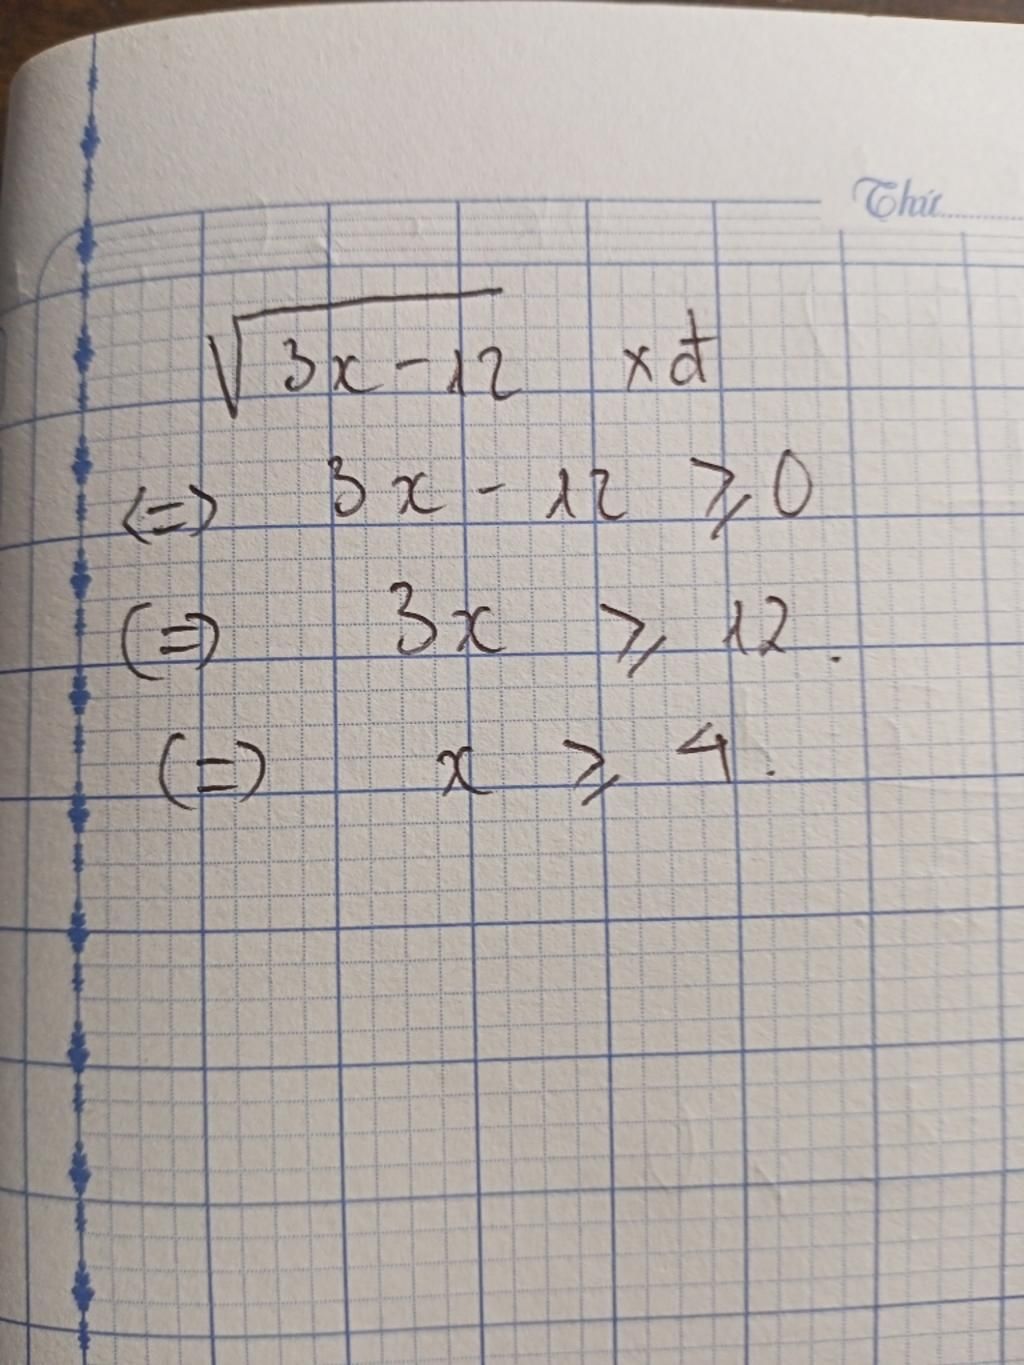 Thứ
√(3x - 12) xđ
<=> 3x - 12 ⩾ 0
(=) 3x ⩾ 12.
(=) x ⩾ 4.